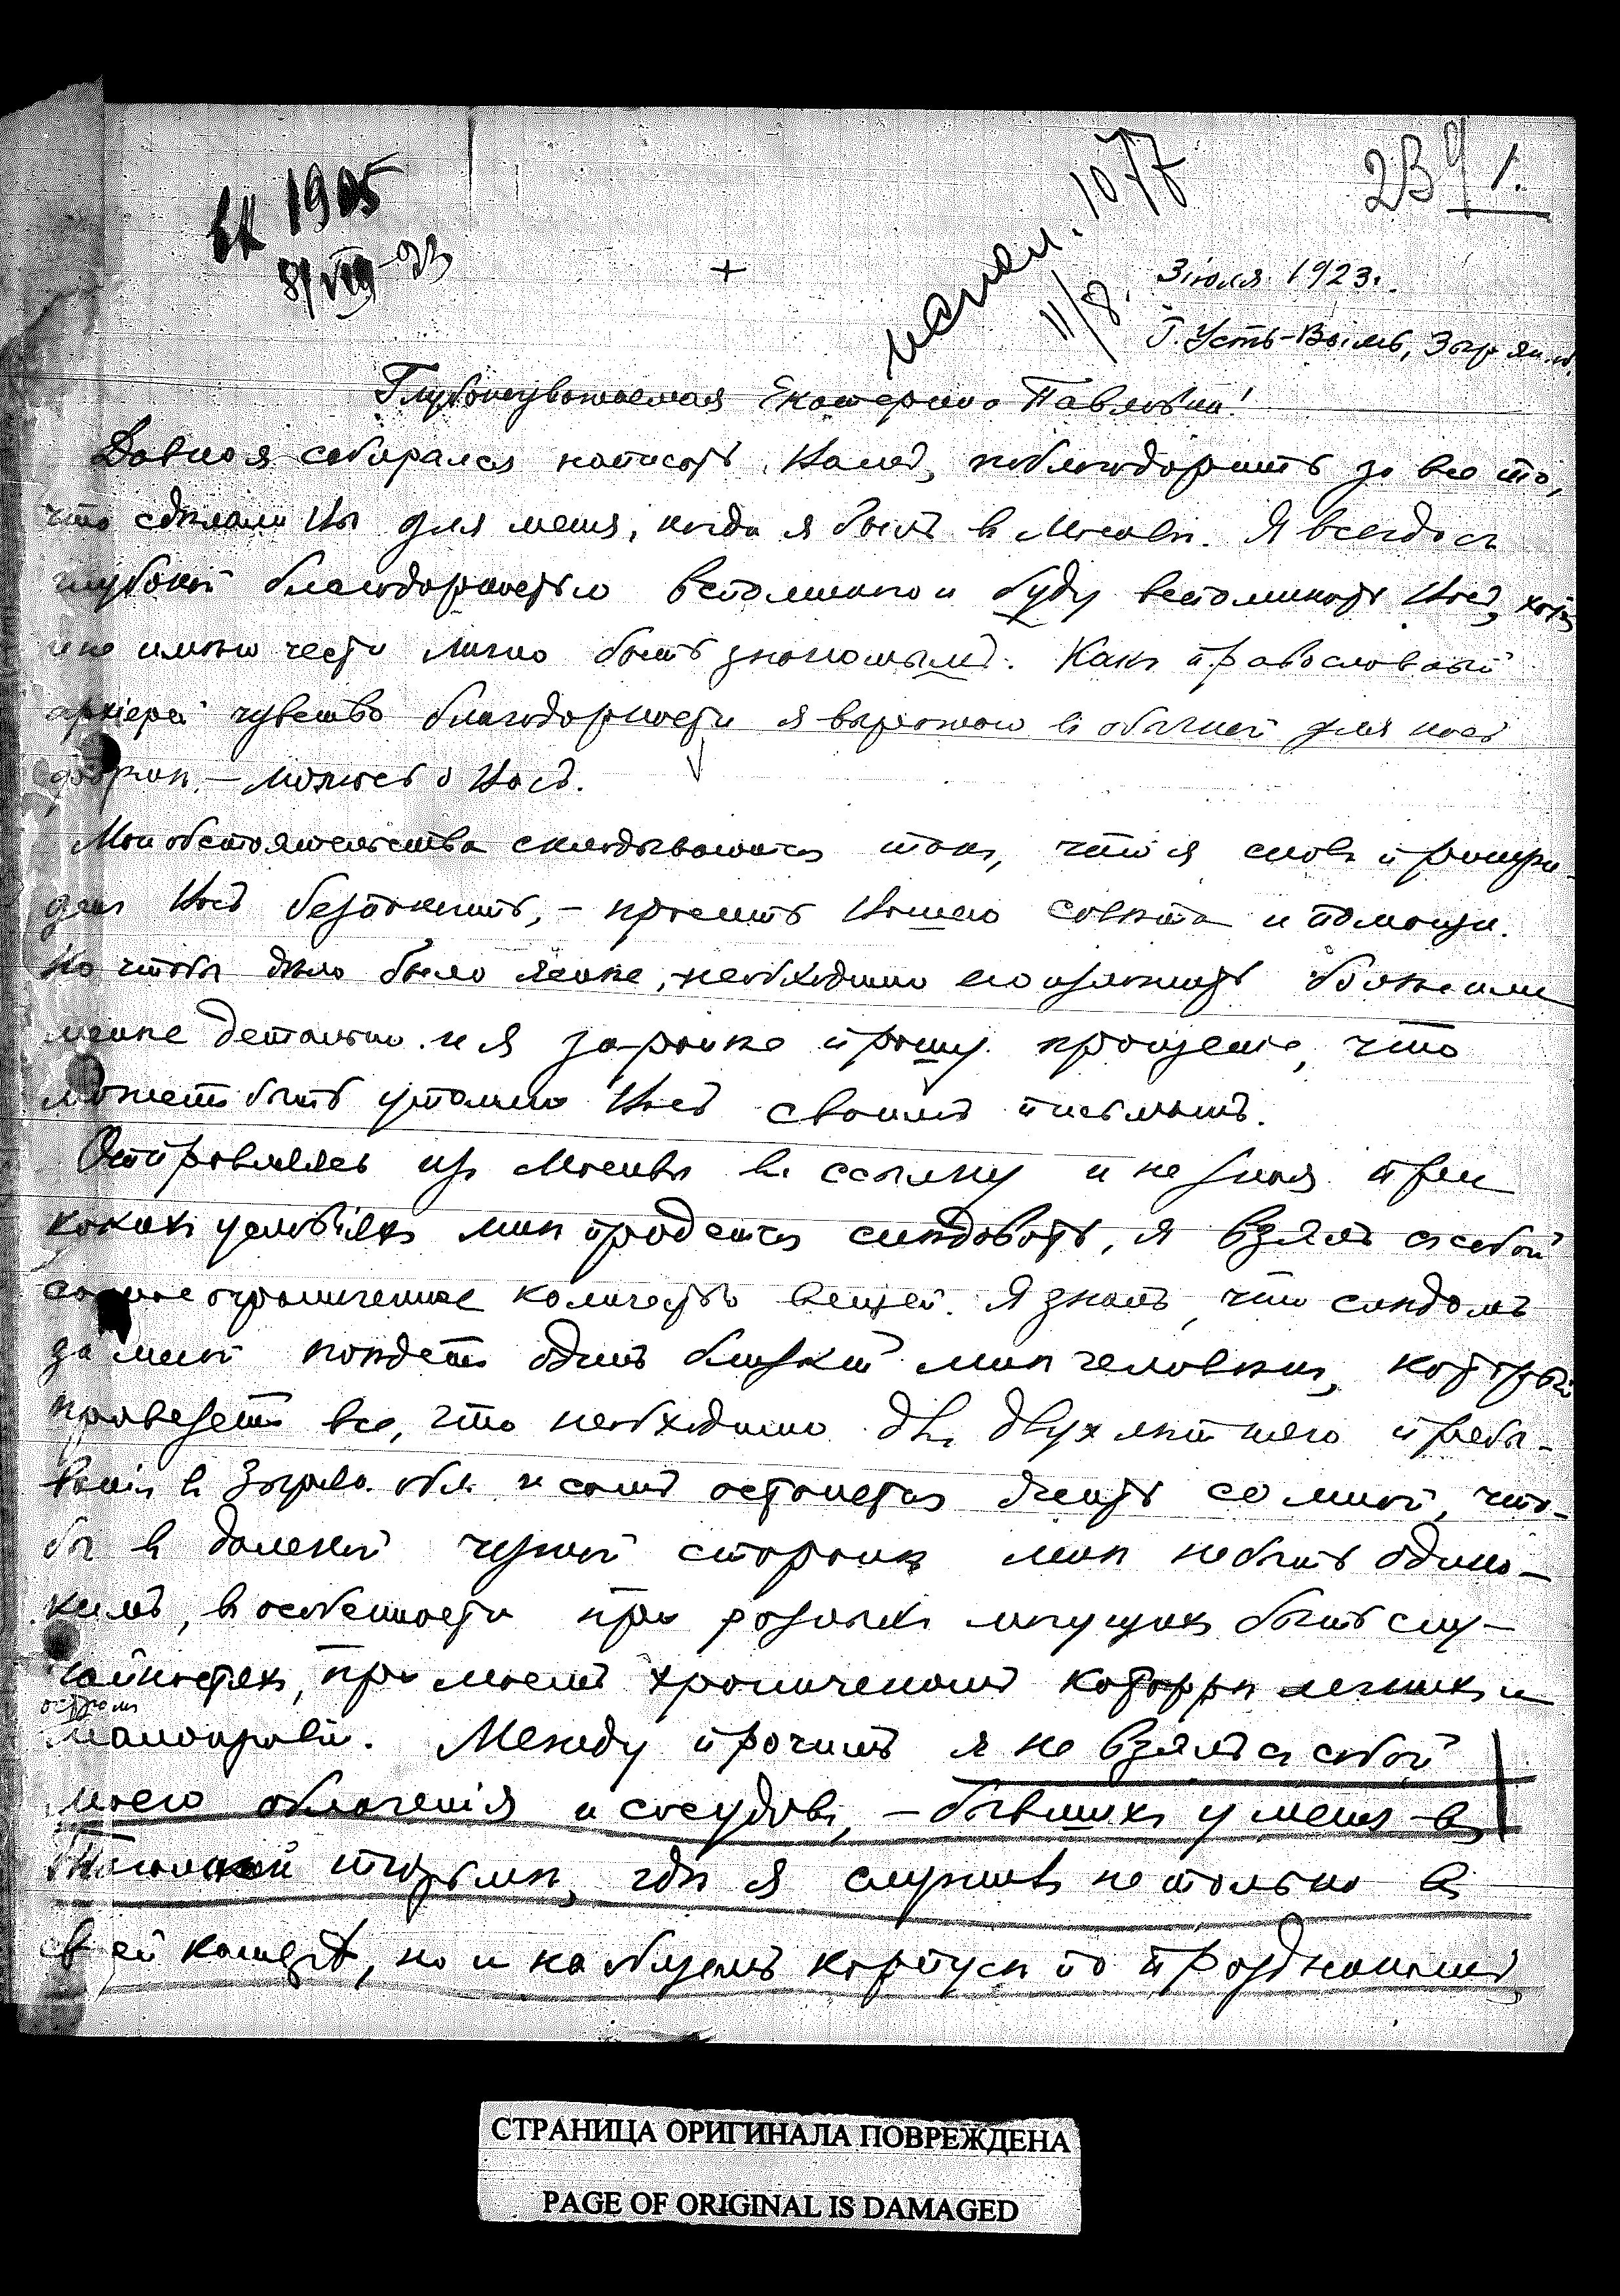 ЕК 1905
8/VIII-23
+
1077
11/8.
239 1.
3 іюля 1923 г.
Г. Усть-Вымь, Зырян. об.
Глубокоуважаемая Екатерина Павловна!
Давно я собирался написать Вамъ, поблагодарить за все то,
что сдѣлали Вы для меня, когда я былъ въ Москвѣ. Я всегда съ
глубокой благодарностью вспоминаю и буду вспоминать Васъ, хотя
и не имѣю чести лично быть знакомымъ. Какъ православный
архіерей чувство благодарности я выражаю въ обычной для насъ
формѣ, – молюсь о Васъ.
Мои обстоятельства складываются такъ, что я снова принуж-
денъ Васъ безпокоить, – просить Вашего совѣта и помощи.
Но чтобы дѣло было яснѣе, необходимо его изложить болѣе или
менѣе детально и я заранѣе прошу прощенія, что
можетъ быть утомлю Васъ своимъ письмомъ.
Отправляясь изъ Москвы въ ссылку и не зная при
какихъ условіяхъ мнѣ придется слѣдовать, я взялъ съ собой
самое ограниченное количество вещей. Я зналъ, что слѣдомъ
за мной поѣдетъ одинъ близкій мнѣ человѣкъ, который
привезетъ все, что необходимо для двухлѣтняго пребы-
ванія въ Зырян. обл. и самъ останется жить со мной, что-
бы въ далекой чужой сторонѣ мнѣ не быть одино-
кимъ, въ особенности при разныхъ могущихъ быть слу-
чайностяхъ, при моемъ хроническомъ катаррѣ легкихъ и
остромъ
малокровіи. Между прочимъ я не взялъ съ собой
моего облаченія и сосудовъ, – бывшихъ у меня въ
тюрьмѣ, гдѣ я служилъ не только въ
своей камерѣ, но и на общемъ корпусѣ по праздникамъ
СТРАНИЦА ОРИГИНАЛА ПОВРЕЖДЕНА
PAGE OF ORIGINAL IS DAMAGED